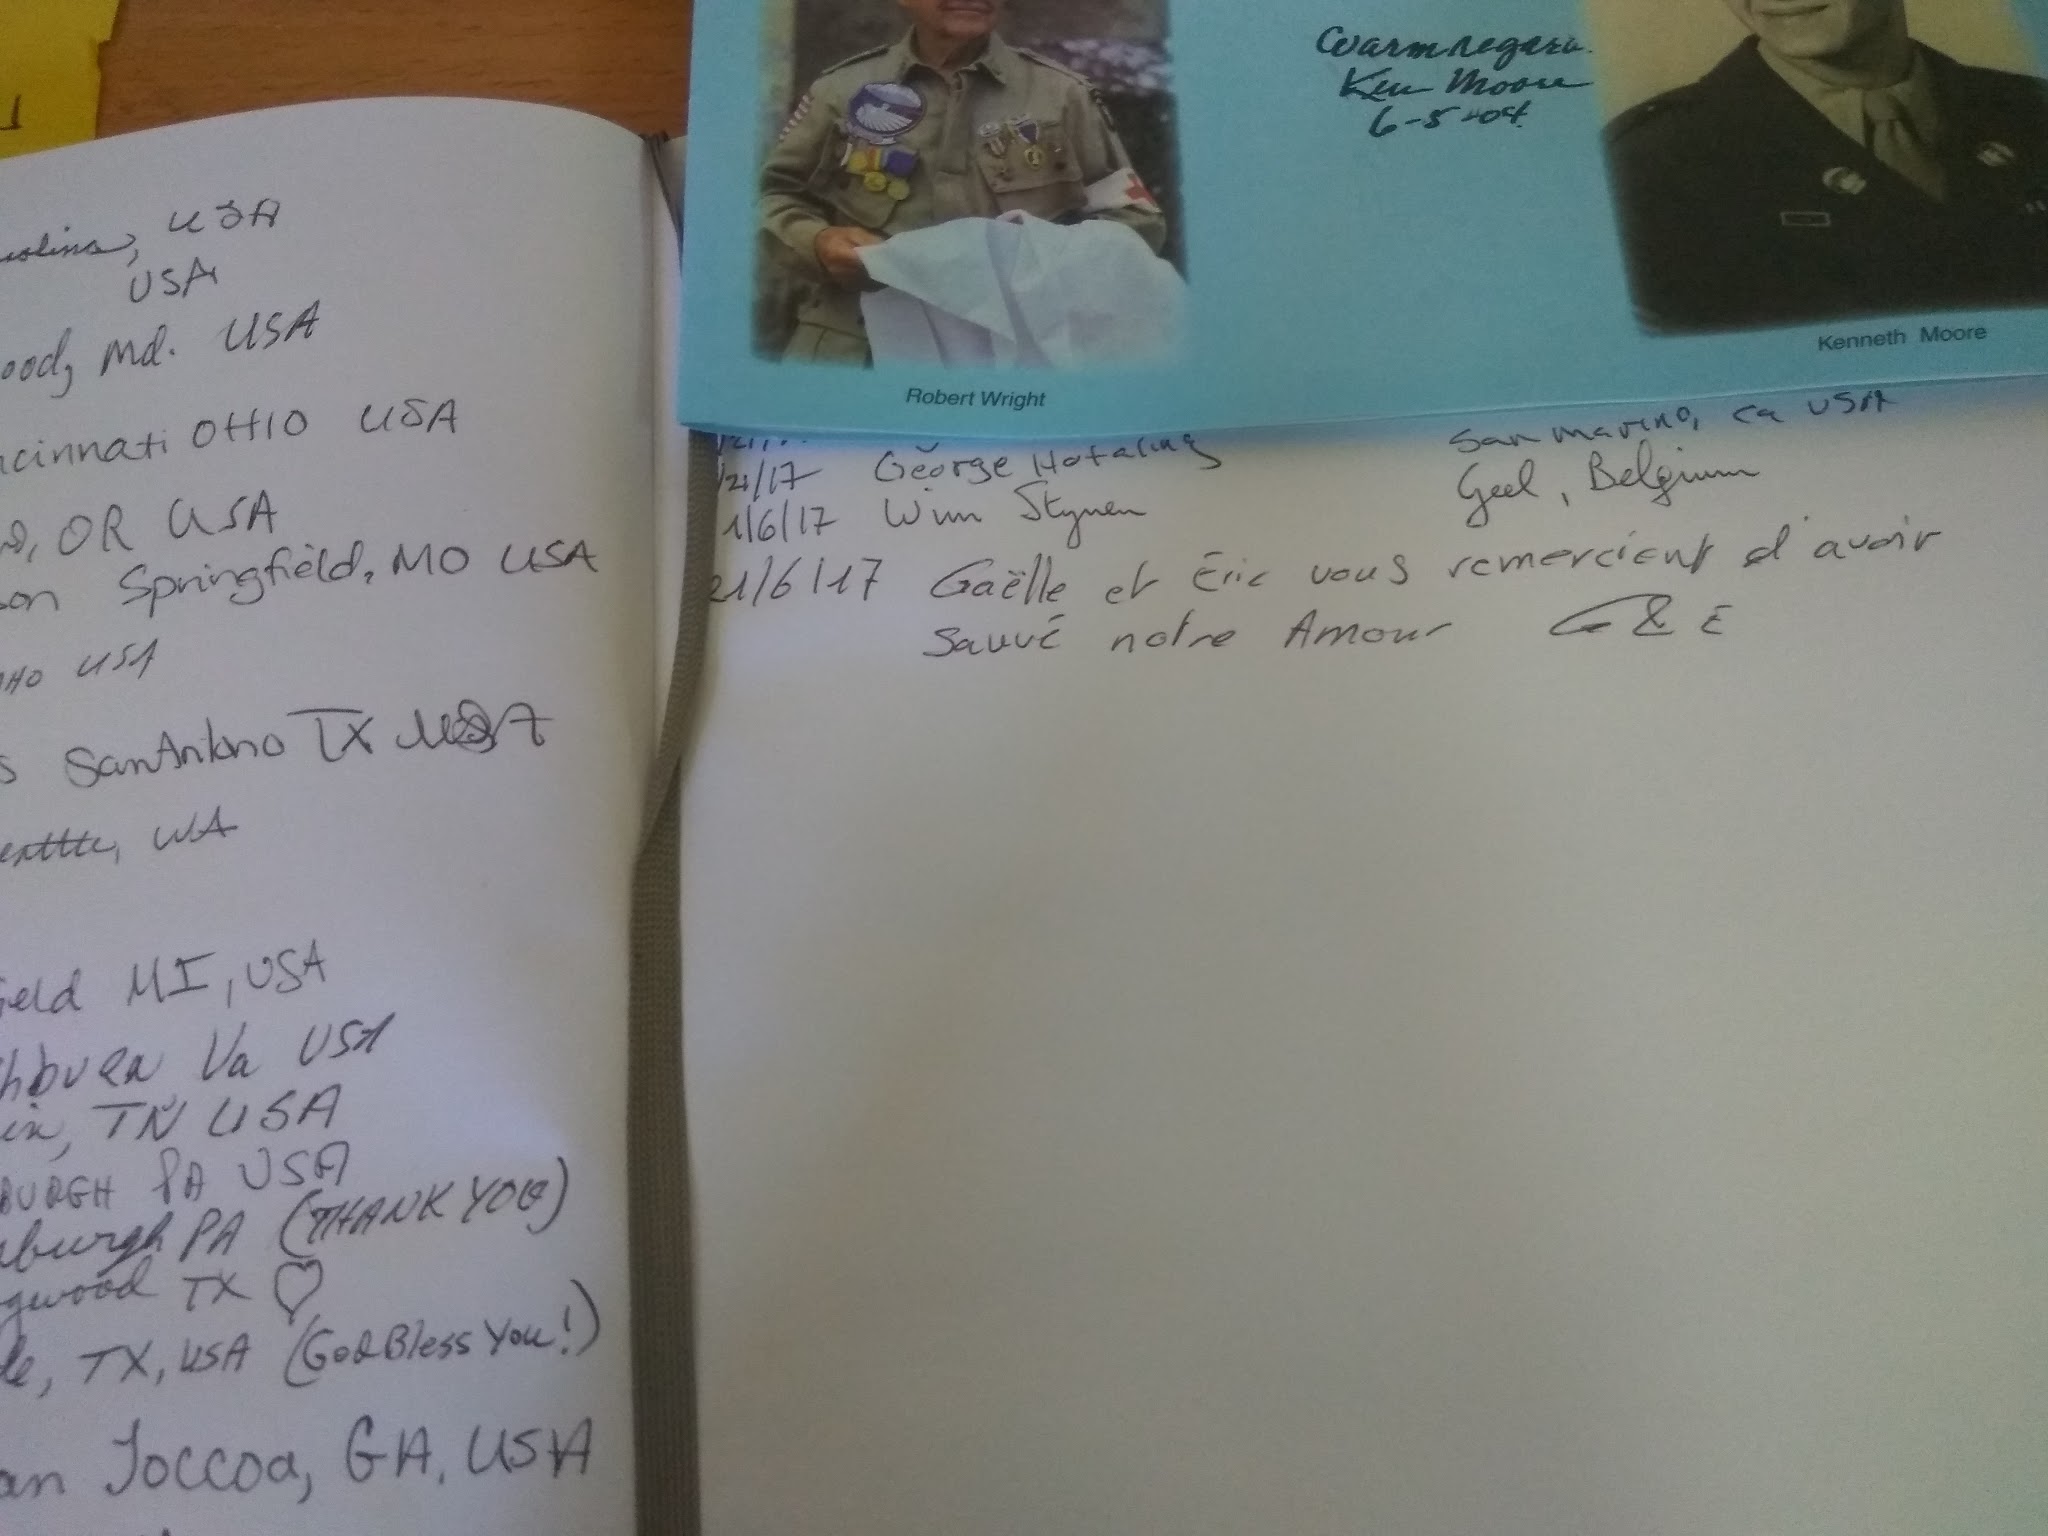 USA
USA
Md. USA
OHIO USA
OR USA
Springfield, MO USA
USA
San Antonio TX USA
WA
MI, USA
Va USA
TN USA
PA USA
PA (THANK YOU)
TX
TX, USA (God Bless You!)
Toccoa, GA, USA
Warm regards
Ken Moore
6-5-04
Robert Wright
Kenneth Moore
San marino, ca USA
/21/17 George Hotaling
Geel, Belgium
1/6/17 Wim Stynen
21/6/17 Gaëlle et Éric vous remercient d'avoir
Sauvé notre Amour G & E